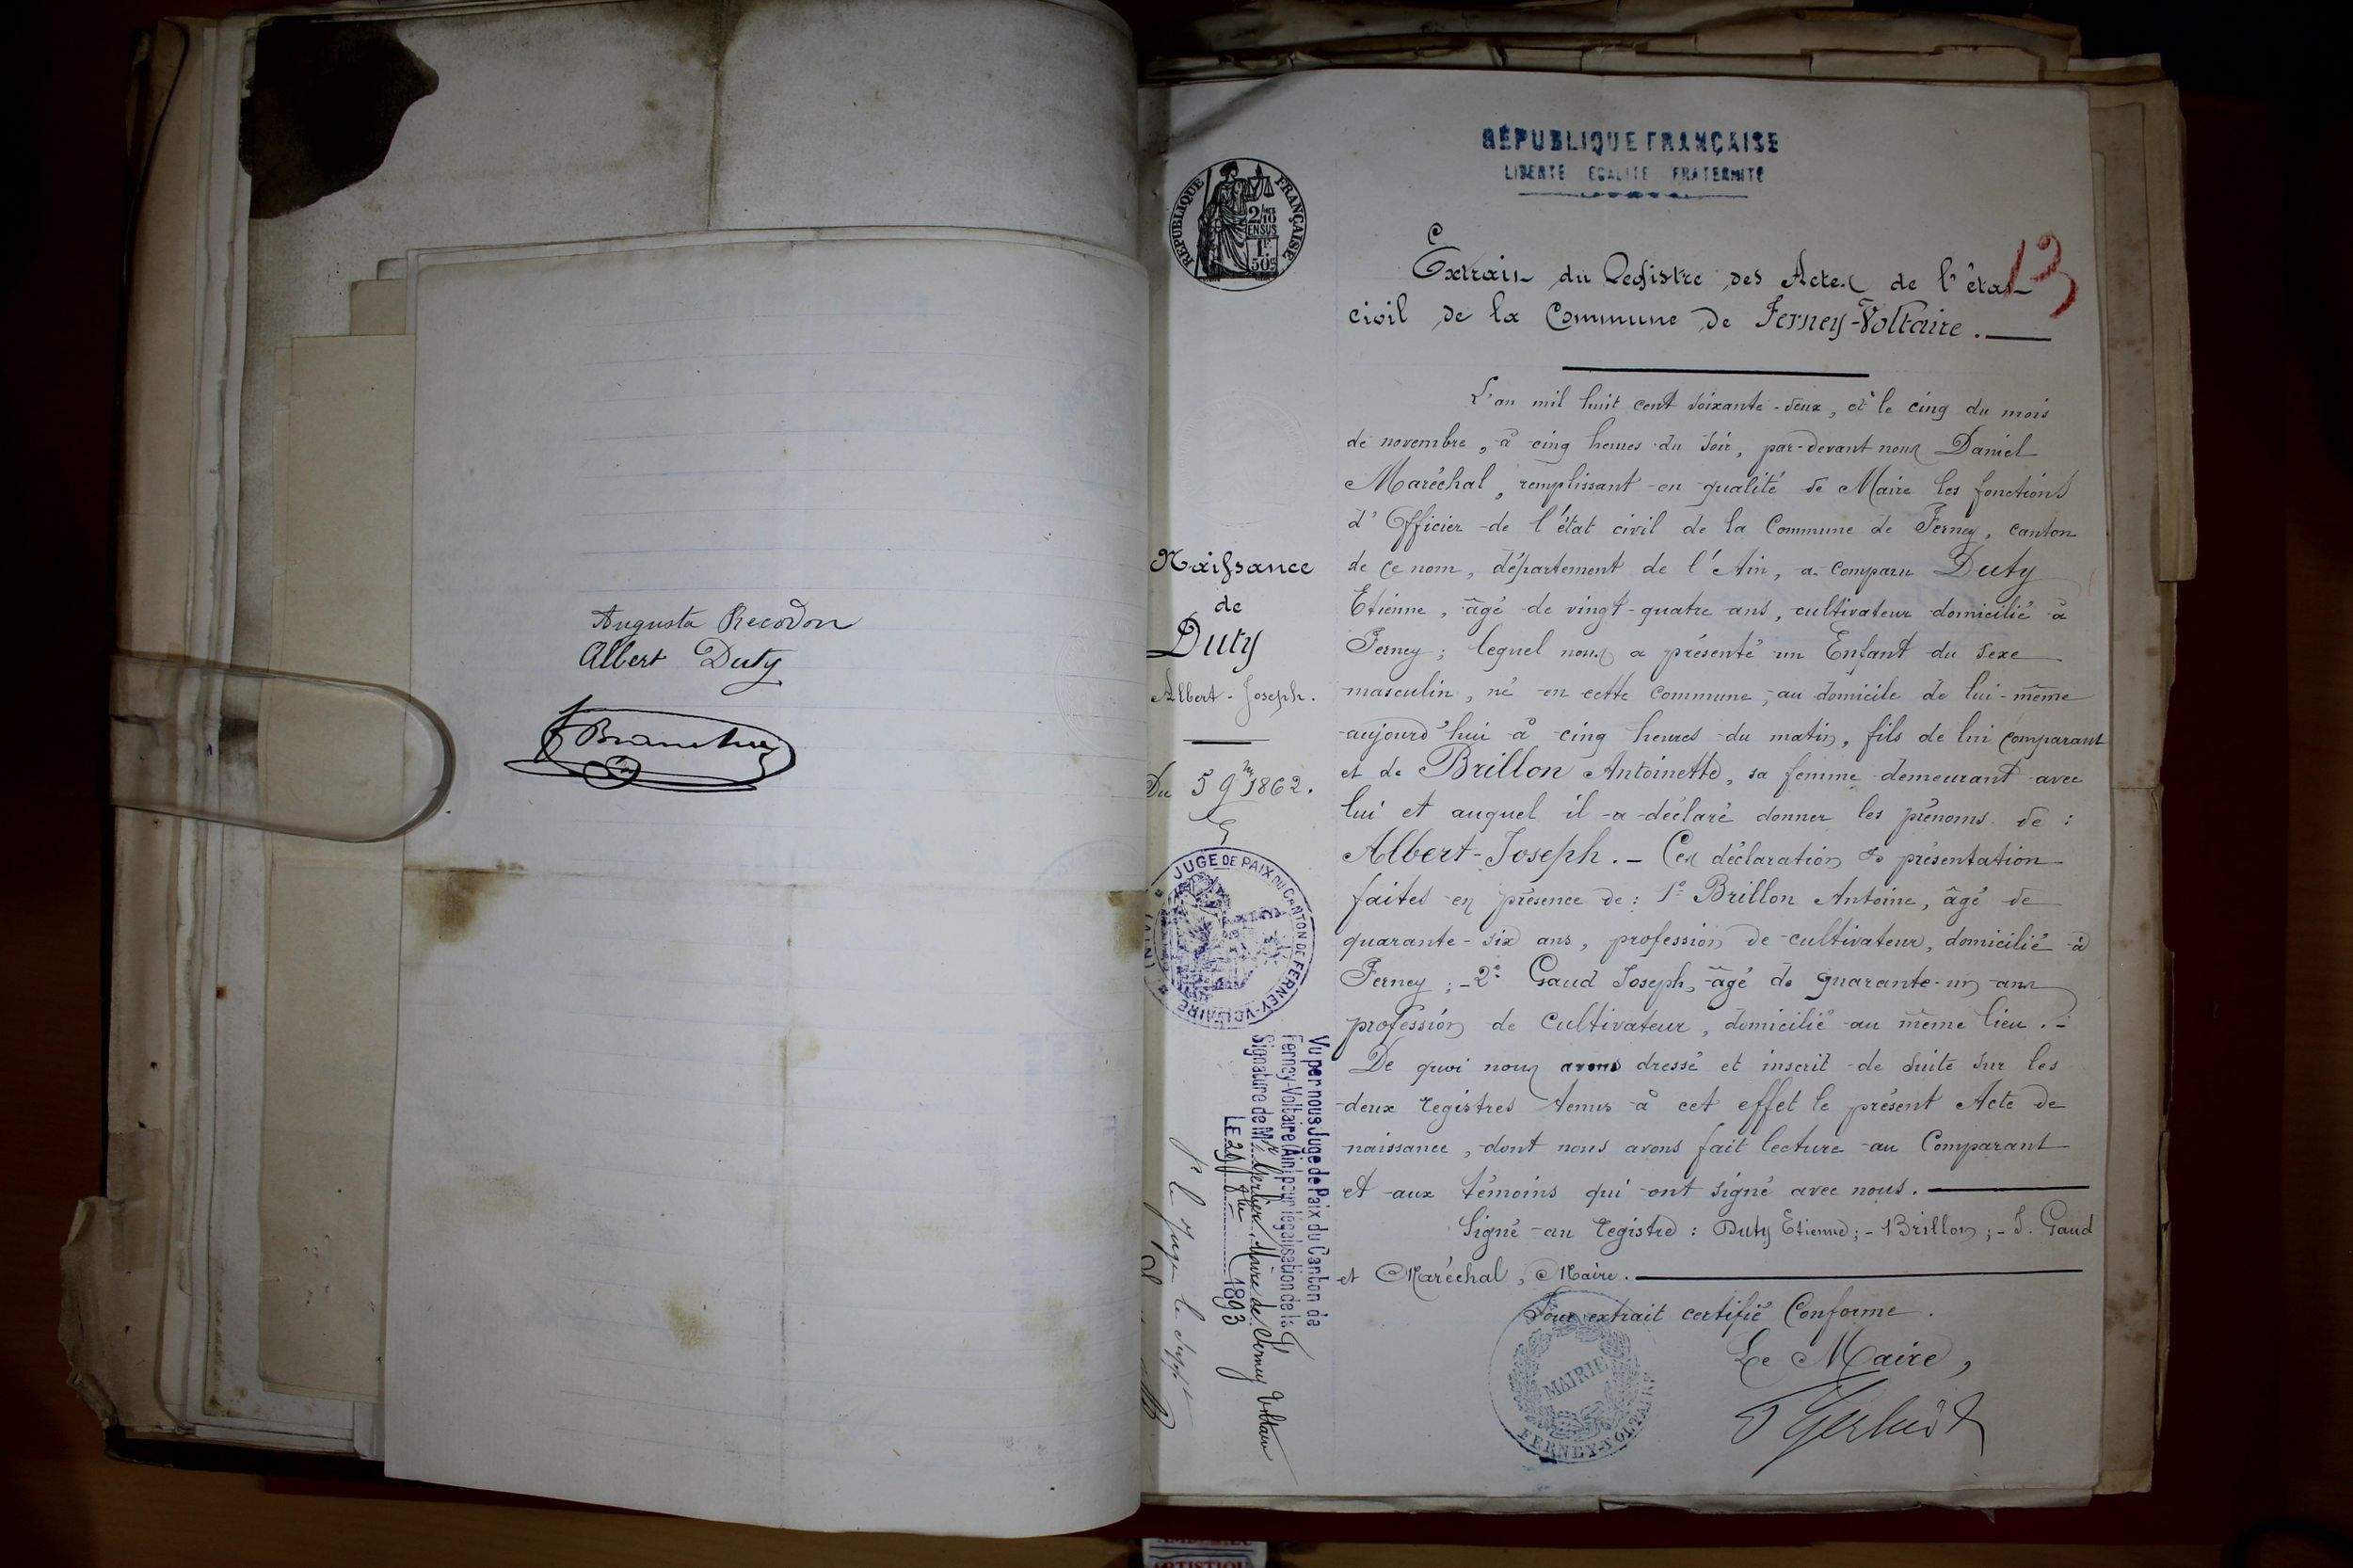 Augusta Recordon
Albert Duty
RÉPUBLIQUE FRANÇAISE
LIBERTÉ EGALITÉ FRATERNITÉ
REPUBLIQUE FRANÇAISE
2/10
EN SUS
1F.
50c
13
Extrait du Registre des Actes de l'état
civil de la Commune de Ferney-Voltaire.
L'an mil huit cent soixante-deux, et le cinq du mois
de novembre, à cinq heures du soir, par-devant nous Daniel
Maréchal, remplissant en qualité de Maire les fonctions
d'Officier de l'état civil de la Commune de Ferney, canton
de ce nom, département de l'Ain, a comparu Duty
Etienne, âgé de vingt-quatre ans, cultivateur domicilié à
Ferney; lequel nous a présenté un Enfant du sexe
masculin, né en cette commune, au domicile de lui-même
aujourd'hui à cinq heures du matin, fils de lui comparant
et de Brillon Antoinette, sa femme demeurant avec
lui et auquel il a déclaré donner les prénoms de :
Albert-Joseph. - Ces déclaration & présentation
faites en présence de : 1° Brillon Antoine, âgé de
quarante-six ans, profession de cultivateur, domicilié à
Ferney ; - 2° Gaud Joseph, âgé de quarante-un ans
profession de cultivateur, domicilié au même lieu. -
De quoi nous avons dressé et inscrit de suite sur les
deux registres tenus à cet effet le présent Acte de
naissance, dont nous avons fait lecture au Comparant
et aux témoins qui ont signé avec nous.
Signé au registre : Duty Etienne ; - Brillon ; - J. Gaud
et Maréchal, Maire.
Pour extrait certifié Conforme.
Le Maire,
MAIRIE
FERNEY-VOLTAIRE
Naissance
de
Duty
Albert-Joseph.
Du 5 9bre 1862.
JUGE DE PAIX DU CANTON DE FERNEY-VOLTAIRE (AIN)
Vu par nous Juge de Paix du Canton de
Ferney-Voltaire (Ain) pour légalisation de la
Signature de Mr Gerlier, Maire de Ferney Voltaire
LE 29 1893
Pr le Juge le Suppt